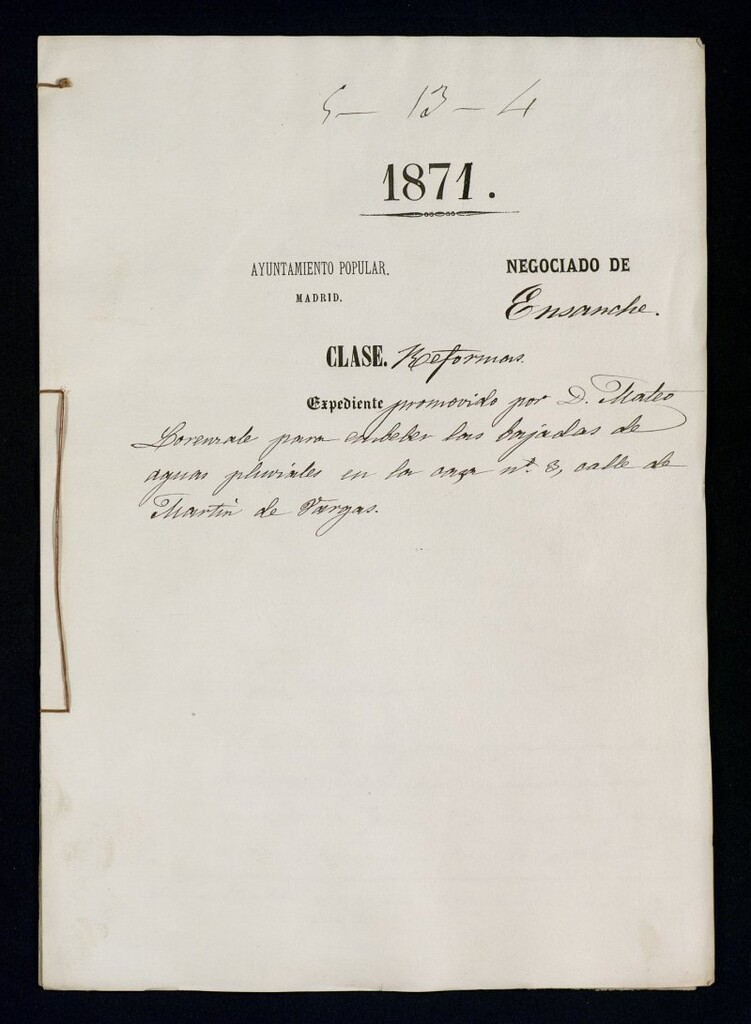 5 - 13 - 4
1871.
AYUNTAMIENTO POPULAR.
MADRID.
NEGOCIADO DE
Ensanche.
CLASE. Reformas.
Expediente promovido por D. Mateo
Lorenzale para embeber las bajadas de
aguas pluviales en la casa nº. 3, calle de
Martín de Vargas.